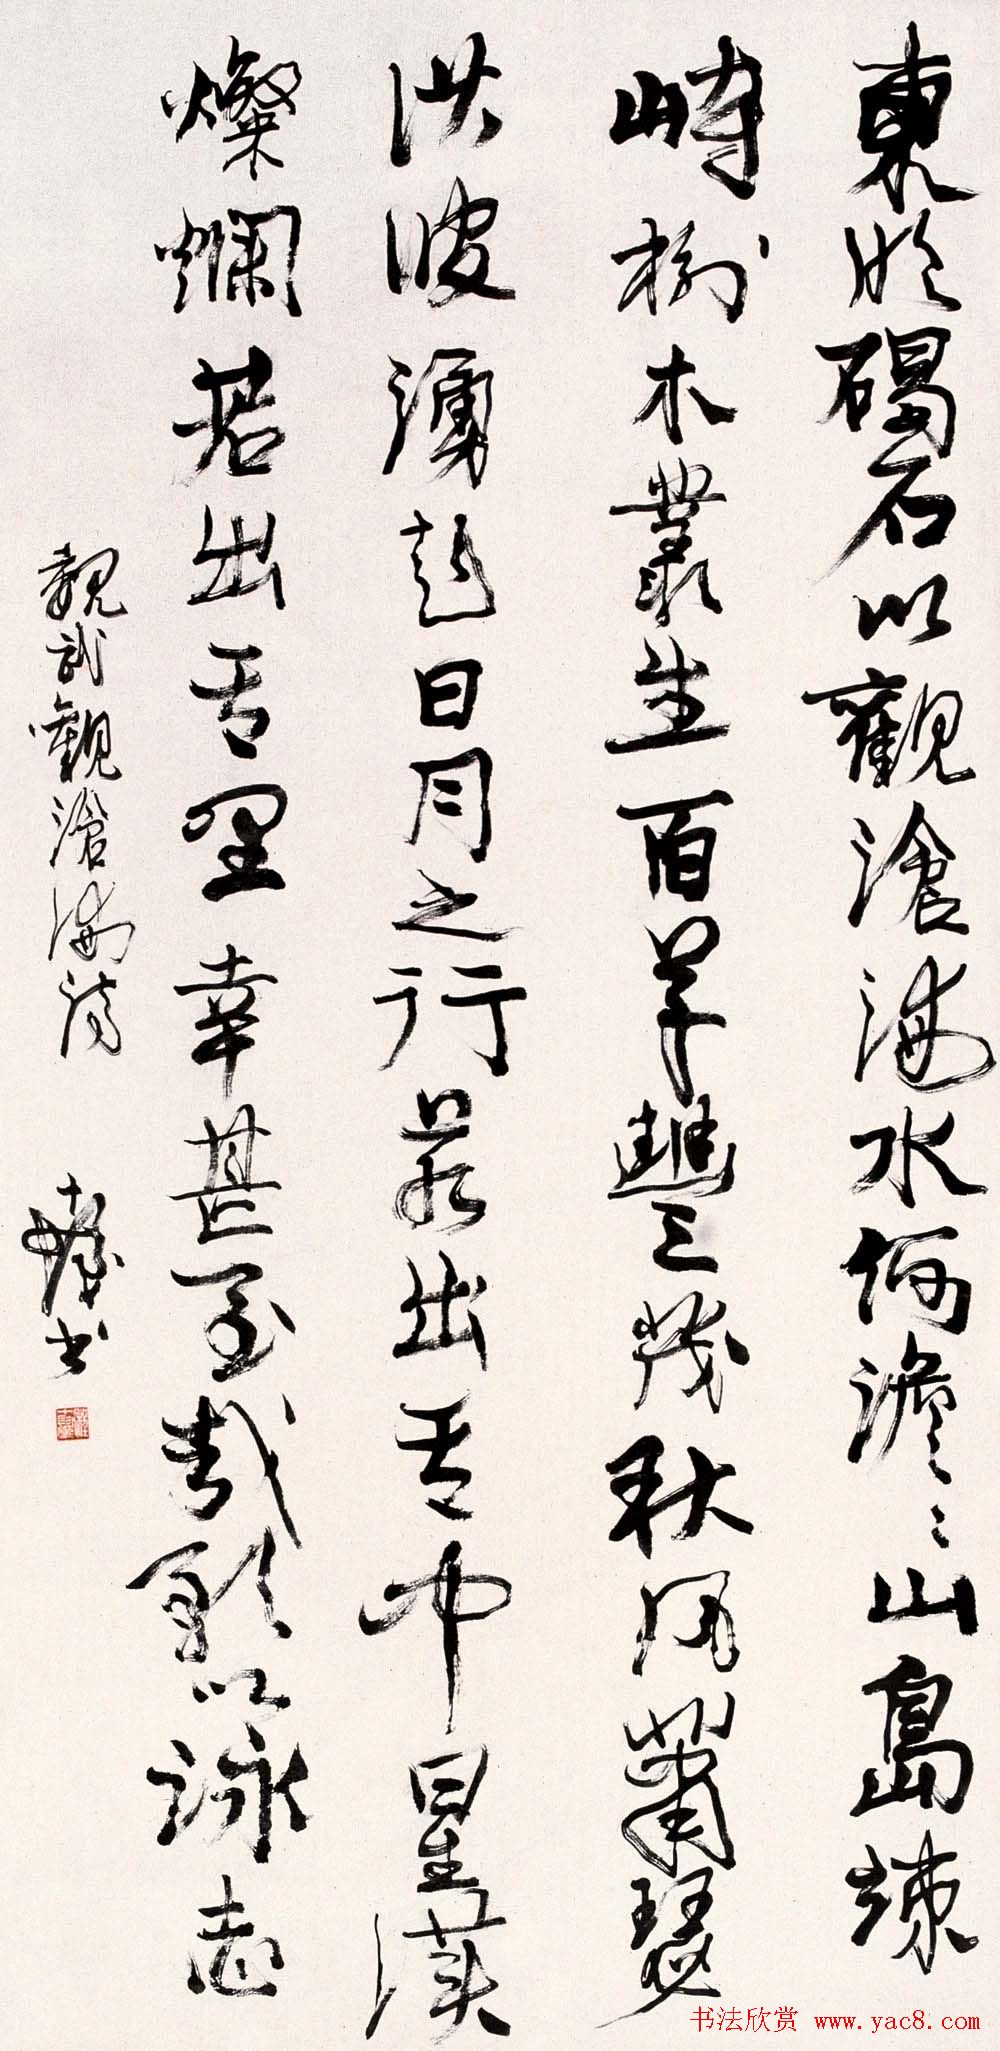 東臨碣石以觀滄海水何澹〻山島竦
峙樹木叢生百草豐茂秋風蕭瑟
洪波湧起日月之行若出其中星漢
燦爛若出其里幸甚至哉歌以詠志
魏武觀滄海詩
書
书法欣赏 www.yac8.com